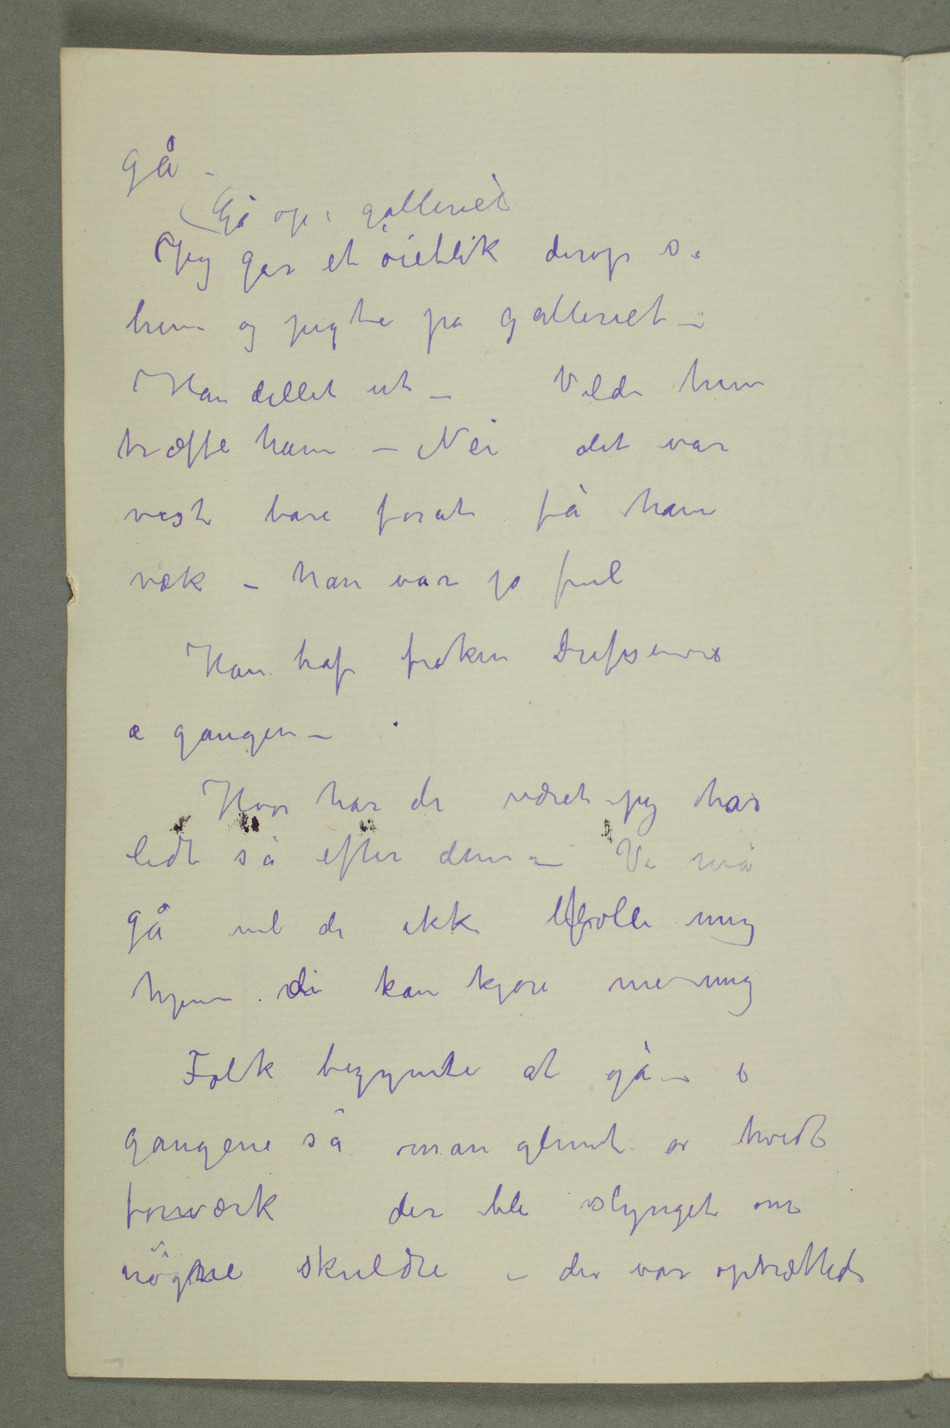 gå –
(Gå op i galleriet
Jeg går et öieblik derop sa
hun og pegte på galleriet –
Han dillet ut – Vilde hun
træffe ham – Nei det var
vest bare forat få ham
væk – han var jo ful
Han traf frøken
i gangen –
Hvor har de været – jeg har
ledt så efter dem – Vi må
gå vil de ikke følle mig
hjem. di kan kjøre me mig
Folk begynte at gå – i
gangene så man glimt av hvidt
forværk der ble slynget om
nögne skuldre – der var optrættede